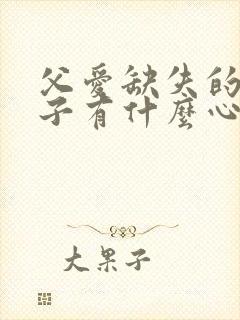 父愛缺失的
子有什麼心
大果子